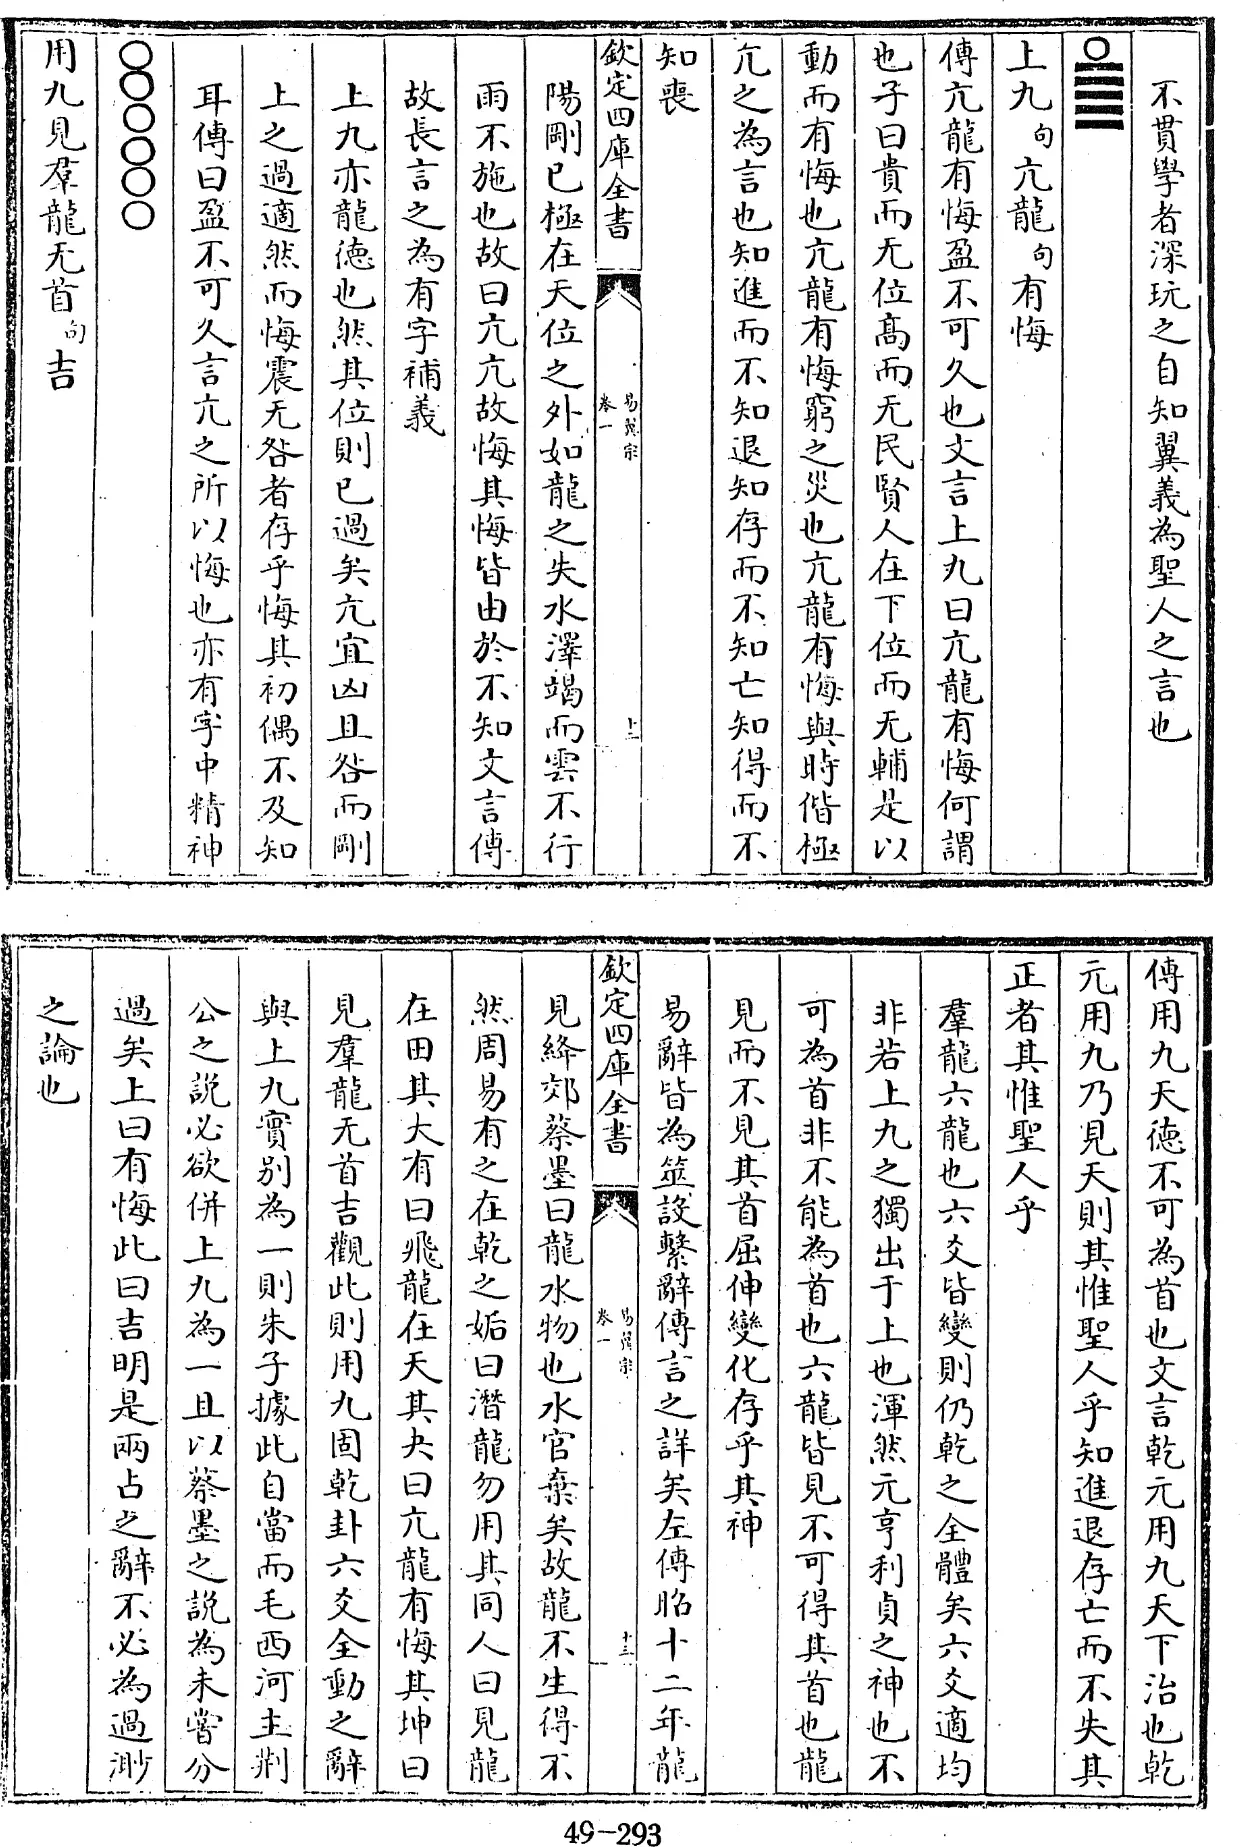 不貫學者深玩之自知翼義為聖人之言也
上九句亢龍句有悔
傳亢龍有悔盈不可久也文言上九曰亢龍有悔何謂
也子曰貴而无位髙而无民賢人在下位而无輔是以
動而有悔也亢龍有悔窮之災也亢龍有悔與時偕極
亢之為言也知進而不知退知存而不知亡知得而不
知喪
欽定四庫全書
易翼宗
卷一
十二
陽剛已極在天位之外如龍之失水澤竭而雲不行
雨不施也故曰亢亢故悔其悔皆由於不知文言傳
故長言之為有字補義
上九亦龍德也然其位則已過矣亢宜凶且咎而剛
上之過適然而悔震无咎者存乎悔其初偶不及知
耳傳曰盈不可久言亢之所以悔也亦有字中精神
○○○○○○
用九見羣龍无首句吉
傳用九天德不可為首也文言乾元用九天下治也乾
元用九乃見天則其惟聖人乎知進退存亡而不失其
正者其惟聖人乎
羣龍六龍也六爻皆變則仍乾之全體矣六爻適均
非若上九之獨出于上也渾然元亨利貞之神也不
可為首非不能為首也六龍皆見不可得其首也龍
見而不見其首屈伸變化存乎其神
易辭皆為筮設繫辭傳言之詳矣左傳昭十二年龍
欽定四庫全書
易翼宗
卷一
十三
見絳郊蔡墨曰龍水物也水官棄矣故龍不生得不
然周易有之在乾之姤曰潛龍勿用其同人曰見龍
在田其大有曰飛龍在天其夬曰亢龍有悔其坤曰
見羣龍无首吉觀此則用九固乾卦六爻全動之辭
與上九實别為一則朱子據此自當而毛西河主荆
公之説必欲併上九為一且以蔡墨之説為未嘗分
過矣上曰有悔此曰吉明是兩占之辭不必為過渺
之論也
49-293